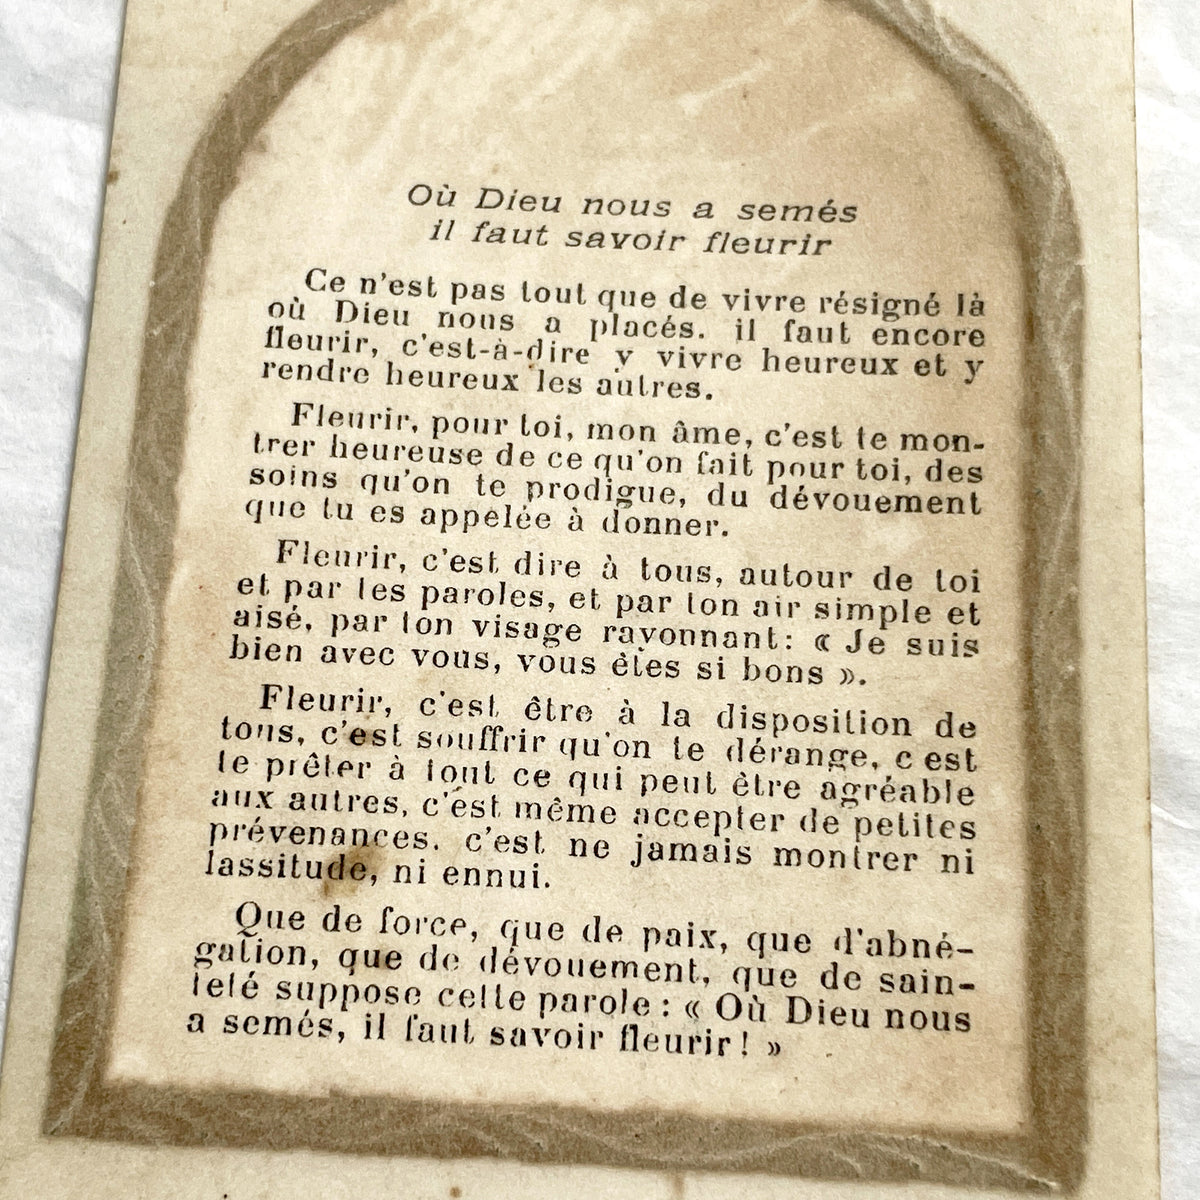 Où Dieu nous a semés
il faut savoir fleurir
Ce n'est pas tout que de vivre résigné là
où Dieu nous a placés. il faut encore
fleurir, c'est-à-dire y vivre heureux et y
rendre heureux les autres.
Fleurir, pour toi, mon âme, c'est te mon-
trer heureuse de ce qu'on fait pour toi, des
soins qu'on te prodigue, du dévouement
que tu es appelée à donner.
Fleurir, c'est dire à tous, autour de toi
et par tes paroles, et par ton air simple et
aisé, par ton visage rayonnant: « Je suis
bien avec vous, vous êtes si bons ».
Fleurir, c'est être à la disposition de
tous, c'est souffrir qu'on te dérange, c est
te prêter à tout ce qui peut être agréable
aux autres, c'est même accepter de petites
prévenances. c'est ne jamais montrer ni
lassitude, ni ennui.
Que de force, que de paix, que d'abné-
gation, que de dévouement, que de sain-
teté suppose cette parole : « Où Dieu nous
a semés, il faut savoir fleurir ! »